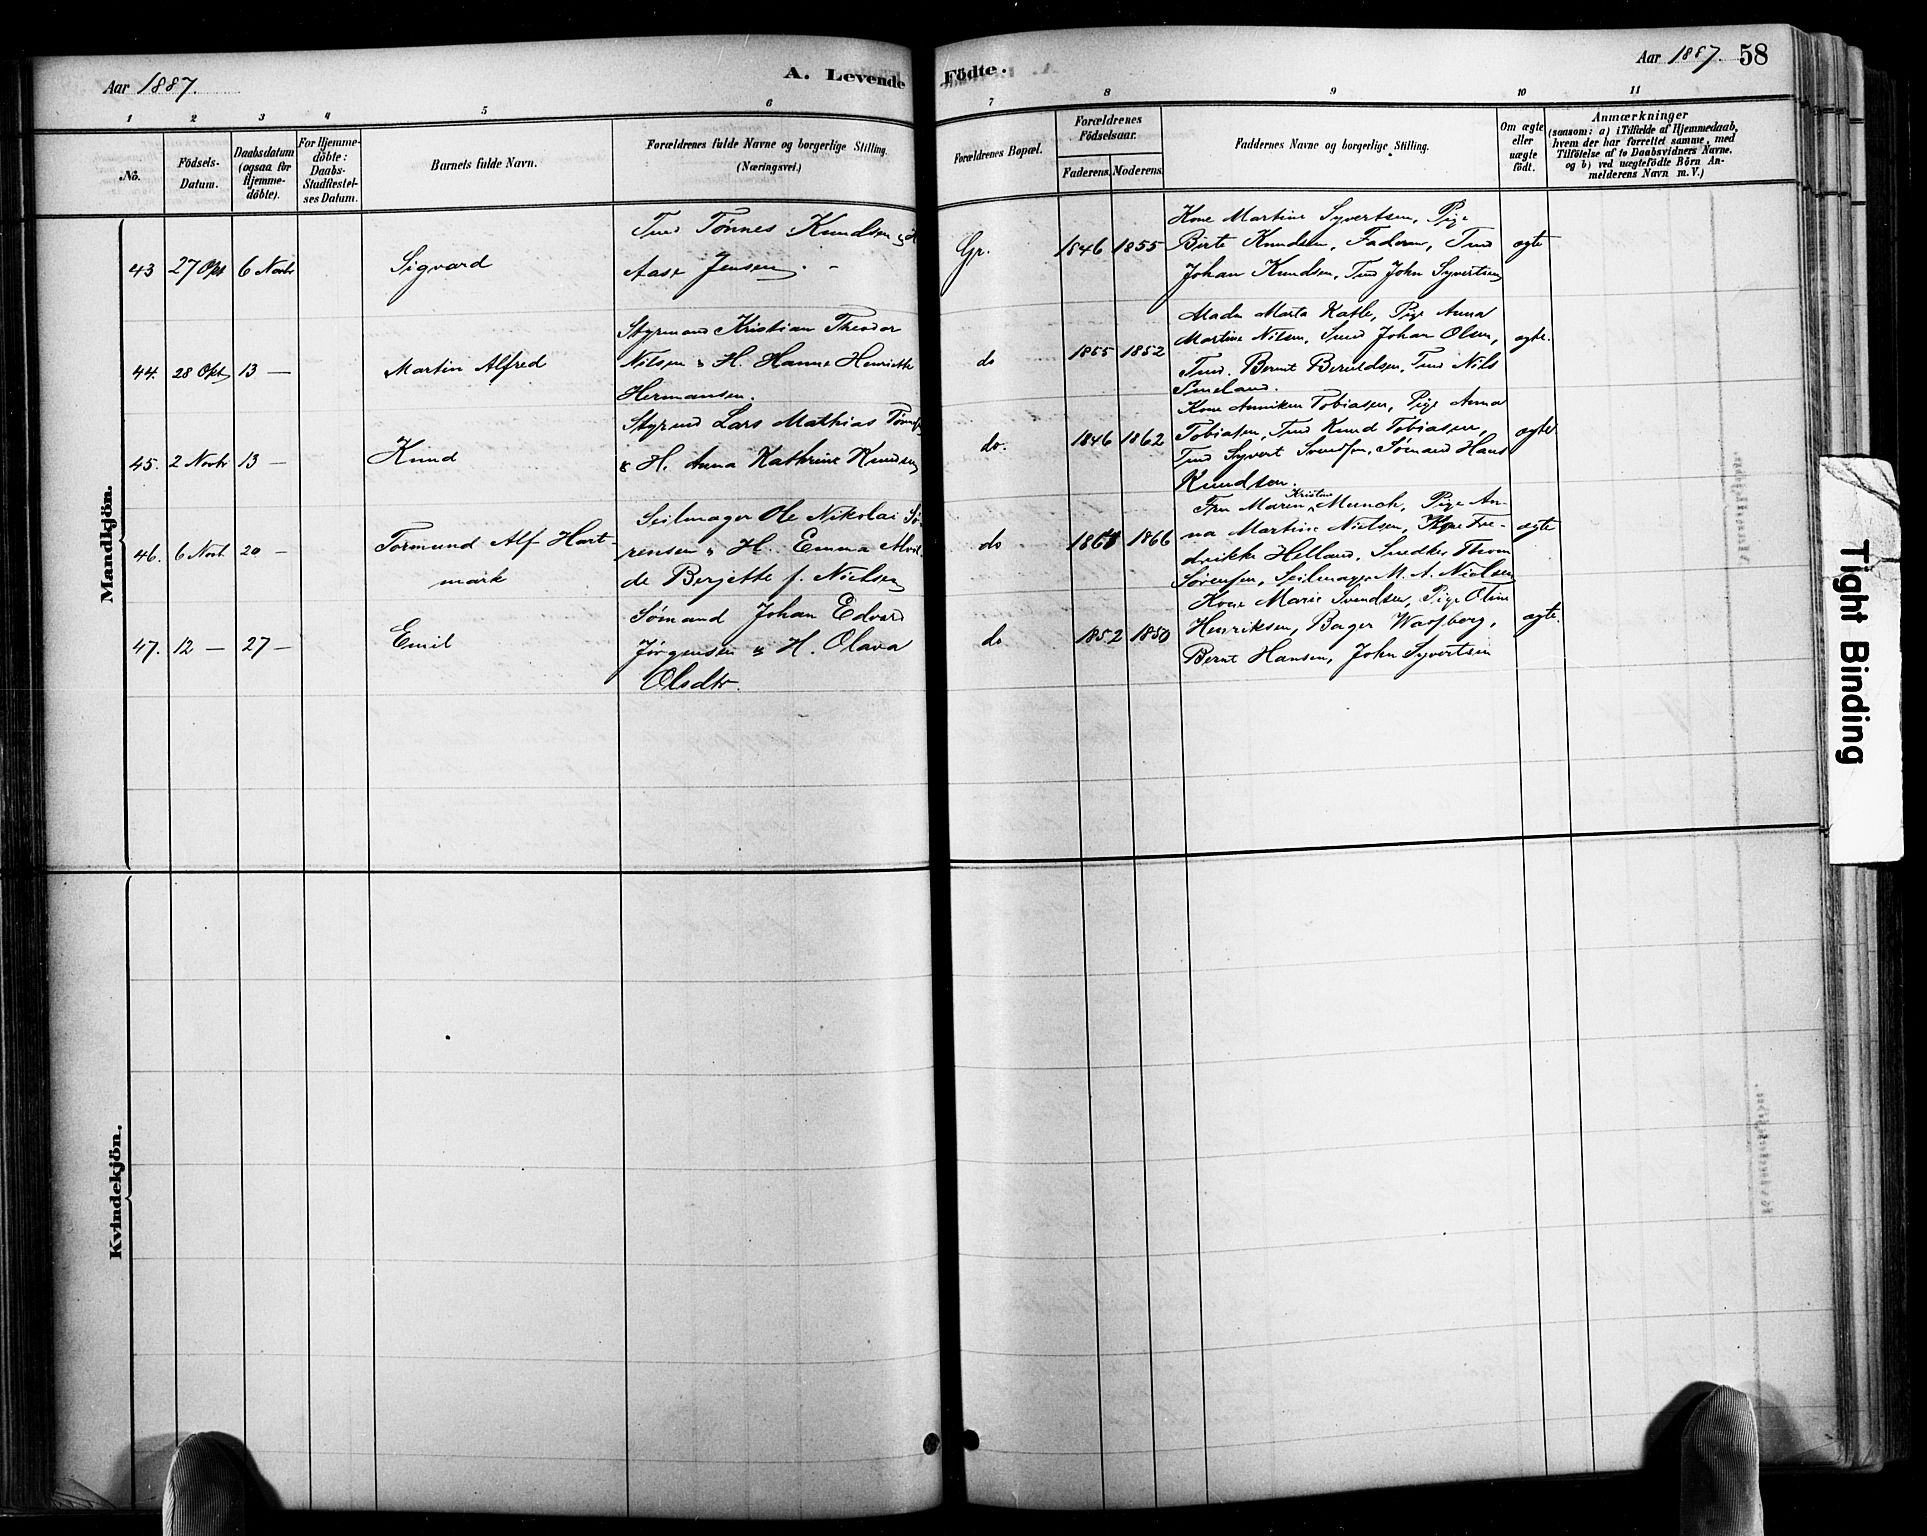 Aar 1887.
A. Levende Födte.
Aar 1887. 58
1 2 3 4 5 6 7 8 9 10 11
No.
Födsels-
Datum.
Daabsdatum
(ogsaa for
Hjemme-
döbte).
For Hjemme-
döbte:
Daabs-
Stadfæstel-
ses Datum.
Barnets fulde Navn.
Forældrenes fulde Navne og borgerlige Stilling.
(Næringsvei.)
Forældrenes Bopæl.
Forældrenes
Födselsaar.
Faderens. Moderens.
Faddernes Navne og borgerlige Stilling.
Om ægte
eller
uægte
födt.
Anmærkninger
(saasom: a) i Tilfælde af Hjemmedaab,
hvem der har forrettet samme, med
Tilföielse af to Daabsvidners Navne.
og b) ved uægtefödte Börn An-
melderens Navn m. V.)
Mandkjön.
43 27 Okt 6 Novbr
Sigvard
Tmd Tønnes Knudsen & H
Aase Jensen.
Gr.
1846 1855
Kone Martine Syvertsen, Pige
Birte Knudsen, Faderen, Tmd
Johan Knudsen, Tmd John Syvertsen
ægte
44. 28 Okt 13 —
Martin Alfred
Styrmand Kristian Theodor
Nilsen & H. Hanne Henriette
Hermansen.
do
1855 1852
Madm Marta Katle, Pige Anna
Martine Nilsen, Smd Johan Olsen,
Tmd. Bernt Beruldsen, Tmd Nils
Smeland.
ægte.
45. 2 Novbr 13 —
Knud
Styrmd Lars Mathias
& H. Anna Kathrine Knudsen
do.
1846 1862
Kone Anniken Tobiasen, Pige Anna
Tobiasen, Tmd Knud Tobiasen,
Tmd Syvert Svendsen, Sømand Hans
Knudsen.
ægte
46. 6 Novb 20 —
Tormund Alf Hart-
mark
Seilmager Ole Nikolai Sø-
rensen & H. Emma
de Berjette f. Nielsen
do
1866
Fru Maren Kristine Munch, Pige An-
na Martine Nielsen, Kone Fre-
drikke Helland, Snedker Thom
Sørensen, Seilmager M. A. Nielsen
ægte
47. 12 — 27 —
Emil
Sømand Johan Edvard
Jørgensen & H. Olava
Olsdtr.
do
1852 1850
Kone Marie Svendsen, Pige Oline
Henriksen, Bager Warsberg,
Bernt Hansen, John Syvertsen
ægte.
Kvindekjön.
Tight Binding